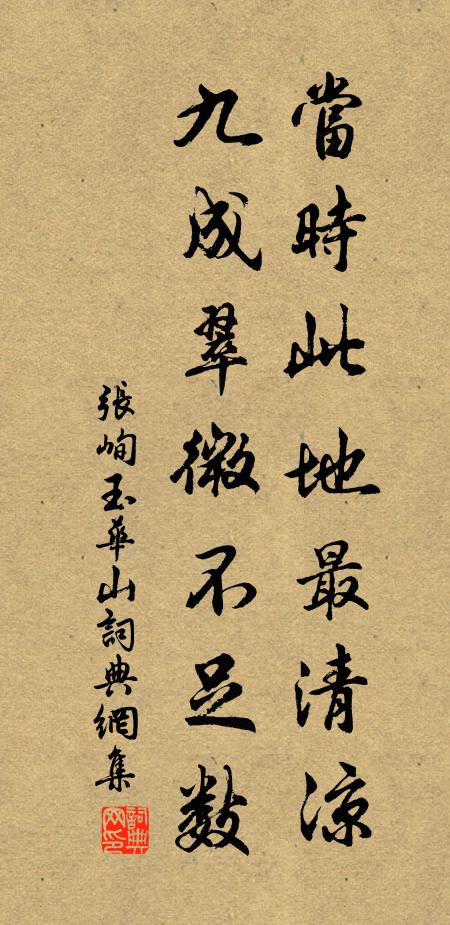 當時此地最清涼
九成翠微不足數
張峋玉華山詞典網集
詞典網印